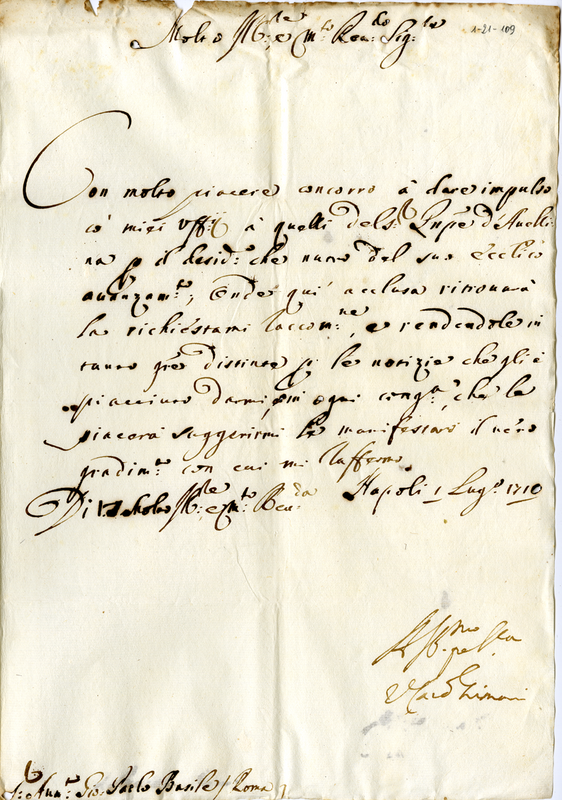 Molto Ill:te, e m:to Reu:do Sig:re
1-21-109
Con molto piacere concorro à dare impulso
co' miei Vffij à quelli del S: Pnpe d'Auelli
na p il desid:o che nutro del suo Ecclico
auanzam:to; Onde qui acclusa ritrouarà
la richiestami raccom:ne, e rendendole in
tanto grẽ distinte p le notizie che gli è
piacciuto darmi, in ogni cong:ra, che le
piacerà suggerirmi le manifestarò il uero
gradim:to con cui mi raffermo
Di V.S. Molto Ill:te, e m:to Reu:da Napoli 1 Lug:o 1710
V Card Grimani
S: Aun:te Gio: Paolo Basile / Roma